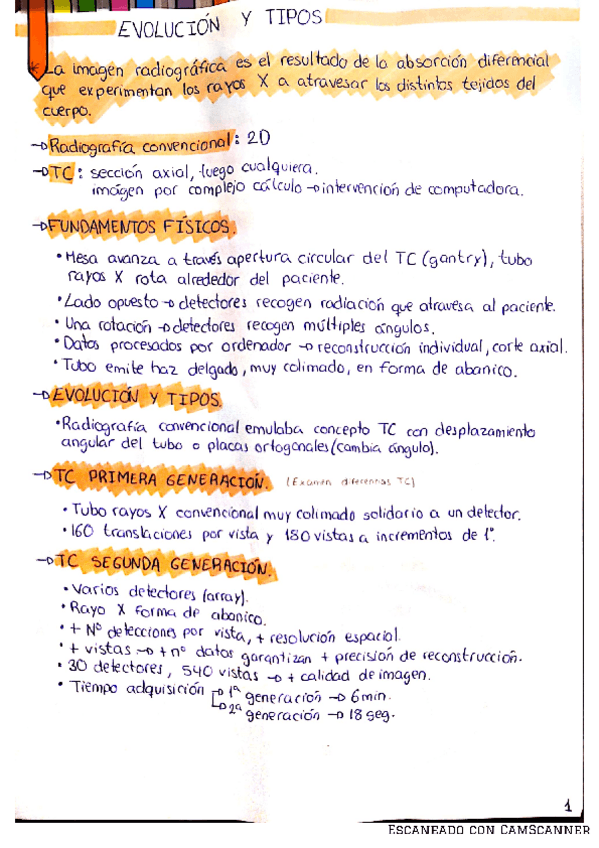 EVOLUCIÓN Y TIPOS
* La imagen radiográfica es el resultado de la absorción diferencial
que experimentan los rayos X a atravesar los distintos tejidos del
cuerpo.
→ Radiografía convencional: 2D
→ TC: sección axial, luego cualquiera.
imágen por complejo cálculo → intervención de computadora.
→ FUNDAMENTOS FÍSICOS.
• Mesa avanza a través apertura circular del TC (gantry), tubo
rayos X rota alrededor del paciente.
• Lado opuesto → detectores recogen radiación que atravesa al paciente.
• Una rotación → detectores recogen múltiples ángulos.
• Datos procesados por ordenador → reconstrucción individual, corte axial.
• Tubo emite haz delgado, muy colimado, en forma de abanico.
→ EVOLUCIÓN Y TIPOS.
• Radiografía convencional emulaba concepto TC con desplazamiento
angular del tubo o placas ortogonales (cambia ángulo).
→ TC PRIMERA GENERACIÓN. (Examen diferencias TC)
• Tubo rayos X convencional muy colimado solidario a un detector.
• 160 translaciones por vista y 180 vistas a incrementos de 1º.
→ TC SEGUNDA GENERACIÓN.
• Varios detectores (array).
• Rayo X forma de abanico.
• + Nº detecciones por vista, + resolución espacial.
• + vistas → + nº datos garantizan + precisión de reconstrucción.
• 30 detectores, 540 vistas → + calidad de imagen.
• Tiempo adquisición → 1ª generación → 6 min.
→ 2ª generación → 18 seg.
1
ESCANEADO CON CAMSCANNER